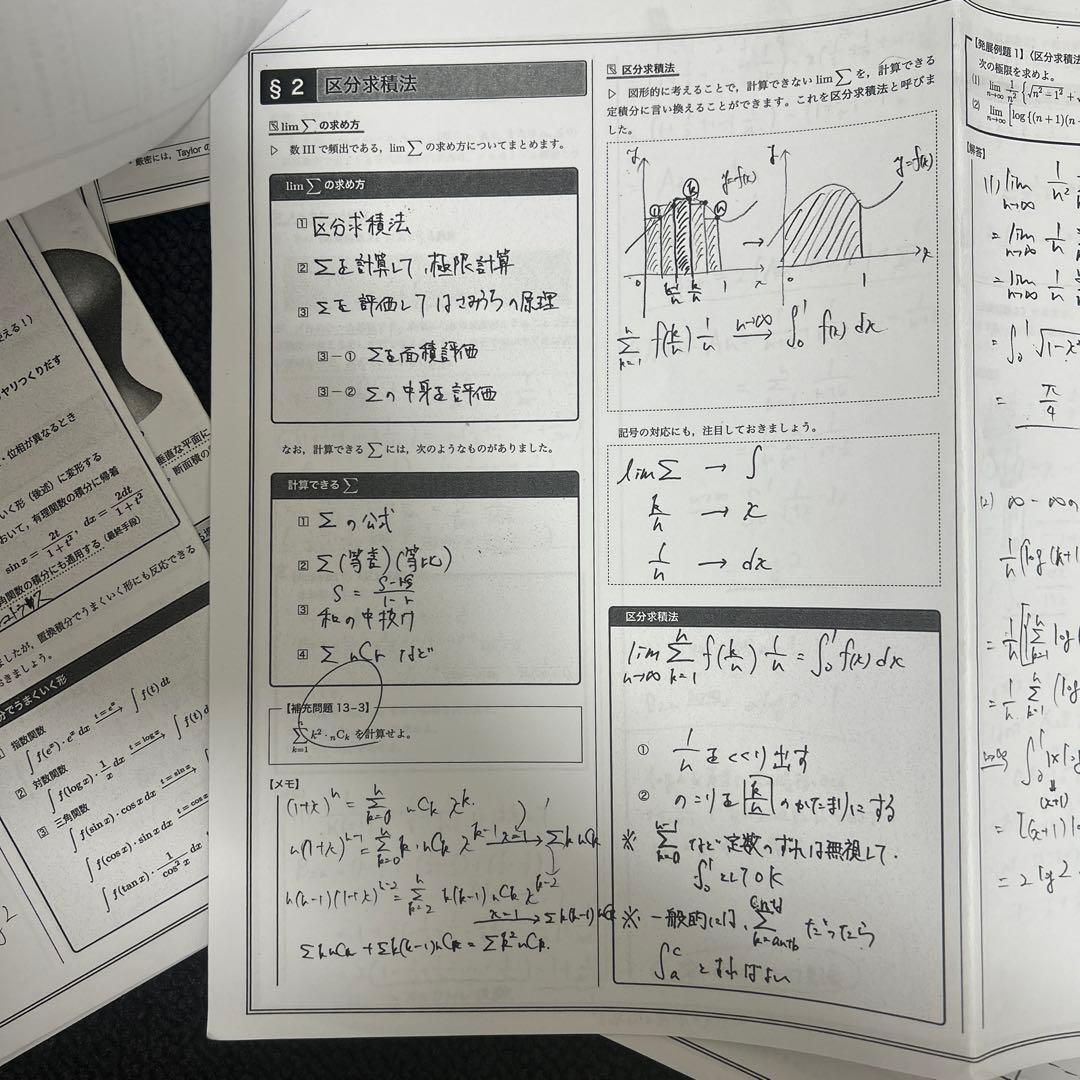 §2 区分求積法
lim∑ の求め方
▷ 数 III で頻出である,lim∑ の求め方についてまとめます。
lim∑ の求め方
1 区分求積法
2 Σを計算して,極限計算
3 Σを評価してはさみうちの原理
3-① Σを面積評価
3-② Σの中身を評価
なお,計算できる ∑ には,次のようなものがありました。
計算できる ∑
1 Σの公式
2 Σ(等差)(等比)
3 和の中抜け
4 Σ nCk など
【補充問題 13-3】
∑_{k=1}^{n} k²・nCk を計算せよ。
【メモ】
(1+x)^n = Σ_{k=0}^{n} nCk x^k.
n(1+x)^{n-1} = Σ_{k=0}^{n} k・nCk x^{k-1} x=1→ Σk nCk
n(n-1)(1+x)^{n-2} = Σ_{k=2}^{n} k(k-1) nCk x^{k-2}
x=1→ Σk(k-1) nCk
Σk nCk + Σk(k-1) nCk = Σk² nCk.
区分求積法
▷ 図形的に考えることで,計算できない lim∑ を,計算できる
定積分に言い換えることができます。これを区分求積法と呼びま
した。
y y=f(x) y y=f(x)
0 k-1/n k/n 1 x → 0 1 x
Σ_{k=1}^{n} f(k/n) 1/n n→∞→ ∫_0^1 f(x) dx
記号の対応にも,注目しておきましょう。
lim Σ → ∫
k/n → x
1/n → dx
区分求積法
lim_{n→∞} Σ_{k=1}^{n} f(k/n) 1/n = ∫_0^1 f(x) dx
① 1/n をくくり出す
② のこりを k/n のかたまりにする
※ Σ_{k=0}^{n-1} など定数のずれは無視して.
∫_0^1 としてOK
※. 一般的には, Σ_{k=an+b}^{cn+d} だったら
∫_a^c とすればよい
【発展例題 1】〈区分求積法
次の極限を求めよ。
(1) lim_{n→∞} 1/n² {√n²−1² +
(2) lim_{n→∞} [log{(n+1)(n
【解答】
(1) lim_{n→∞} 1/n²
= lim_{n→∞} 1/n
= lim_{n→∞} 1/n
= ∫_0^1 √1-x²
= π/4
(2) ∞-∞の
1/n (log(k+1
= 1/n [Σ_{k=1}^{n} log
= 1/n Σ_{k=1}^{n} (log
= [(x+1)
= 2 log 2
厳密には,Taylor の
ヤリつくりだす
・位相が異なるとき
いく形(後述)に変形する
おいて,有理関数の積分に帰着
sin x = 2t/1+t², dx = 2dt/1+t²
角関数の積分にも通用する(最終手段)
ましたが,置換積分でうまくいく形にも反応できる
おきましょう。
分でうまくいく形
1 指数関数
∫ f(e^x)・e^x dx t=e^x→ ∫ f(t) dt
2 対数関数
∫ f(log x)・1/x dx t=log x→ ∫ f(t) d
3 三角関数
∫ f(sin x)・cos x dx t=sin x→
∫ f(cos x)・sin x dx t=cos x→
∫ f(tan x)・1/cos² x dx
垂直な平面に
断面積の